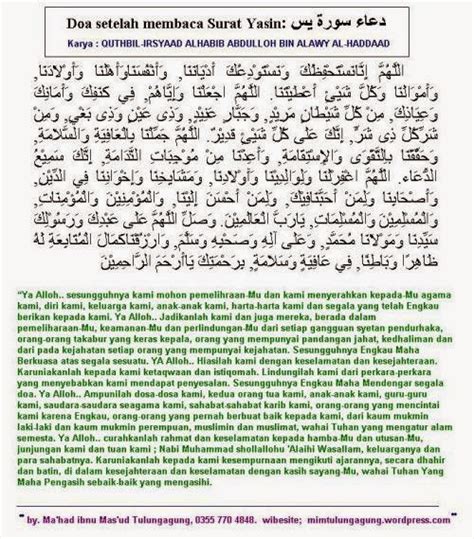 Doa setelah membaca Surat Yasin: دعاء سورة يس
Karya : QUTHBIL-IRSYAAD ALHABIB ABDULLOH BIN ALAWY AL-HADDAAD
اَللَّهُمَّ إِنَّانَسْتَحْفِظُكَ وَنَسْتَوْدِعُكَ أَدْيَانَنَا, وَأَنْفُسَنَاوَأَهْلَنَا وَأَوْلَادَنَا,
وَأَمْوَالَنَا وَكُلَّ شَيْئٍ أَعْطَيْتَنَا. اَللَّهُمَّ اجْعَلْنَا وَإِيَّاهُمْ فِي كَنَفِكَ وَأَمَانِكَ
وَعِيَاذِكَ, مِنْ كُلِّ شَيْطَانٍ مَرِيْدٍ, وَجَبَّارٍ عَنِيْدٍ, وَذِى عَيْنٍ وَذِى بَغْيٍ, وَمِنْ
شَرِّكُلِّ ذِى شَرٍّ, إِنَّكَ عَلَى كُلِّ شَيْئٍ قَدِيْرٌ. اَللَّهُمَّ جَمِّلْنَا بِالْعَافِيَةِ وَالسَّلَامَةِ,
وَحَقِّقْنَا بِالتَّقْوَى وَالْإِسْتِقَامَةِ, وَأَعِذْنَا مِنْ مُوْجِبَاتِ النَّدَامَةِ, إِنَّكَ سَمِيْعُ
الدُّعَاءِ. اَللَّهُمَّ اغْفِرْلَنَا وَلِوَالِدِيْنَا وَأَوْلَادِنَا, وَمَشَايِخِنَا وَإِخْوَانِنَا فِي الدِّيْنِ,
وَأَصْحَابِنَا وَلِمَنْ أَحَبَّنَافِيْكَ, وَلِمَنْ أَحْسَنَ إِلَيْنَا, وَالْمُؤْمِنِيْنَ وَالْمُؤْمِنَاتِ,
وَالْمُسْلِمِيْنَ وَالْمُسْلِمَاتِ, يَارَبَّ الْعَالَمِيْنَ. وَصَلِّ اللَّهُمَّ عَلَى عَبْدِكَ وَرَسُوْلِكَ
سَيِّدِنَا وَمَوْلَانَا مُحَمَّدٍ, وَعَلَى آلِهِ وَصَحْبِهِ وَسَلِّمْ, وَارْزُقْنَاكَمَالَ الْمُتَابَعَةِ لَهُ
ظَاهِرًا وَبَاطِنًا, فِي عَافِيَةٍ وَسَلَامَةٍ, بِرَحْمَتِكَ يَاأَرْحَمَ الرَّاحِمِيْنَ
"Ya Alloh.. sesungguhnya kami mohon pemeliharaan-Mu dan kami menyerahkan kepada-Mu agama
kami, diri kami, keluarga kami, anak-anak kami, harta-harta kami dan segala yang telah Engkau
berikan kepada kami. Ya Alloh.. Jadikanlah kami dan juga mereka, berada dalam
pemeliharaan-Mu, keamanan-Mu dan perlindungan-Mu dari setiap gangguan syetan pendurhaka,
orang-orang takabur yang keras kepala, orang yang mempunyai pandangan jahat, kedhaliman dan
dari pada kejahatan setiap orang yang mempunyai kejahatan. Sesungguhnya Engkau Maha
Berkuasa atas segala sesuatu. YA Alloh.. Hiasilah kami dengan keselamatan dan kesejahteraan.
Karuniakanlah kepada kami ketaqwaan dan istiqomah. Lindungilah kami dari perkara-perkara
yang menyebabkan kami mendapat penyesalan. Sesungguhnya Engkau Maha Mendengar segala
doa. Ya Alloh.. Ampunilah dosa-dosa kami, kedua orang tua kami, anak-anak kami, guru-guru
kami, saudara-saudara seagama kami, sahabat-sahabat karib kami, orang-orang yang mencintai
kami karena Engkau, orang-orang yang pernah berbuat baik kepada kami, dan kaum mukmin
laki-laki dan kaum mukmin perempuan, muslimin dan muslimat, wahai Tuhan yang mengatur alam
semesta. Ya Alloh.. curahkanlah rahmat dan keselamatan kepada hamba-Mu dan utusan-Mu,
junjungan kami dan tuan kami ; Nabi Muhammad shollallohu 'Alaihi Wasallam, keluarganya dan
para sahabatnya. Karuniakanlah kepada kami kesempurnaan mengikuti ajarannya, secara dhahir
dan batin, di dalam kesejahteraan dan keselamatan dengan kasih sayang-Mu, wahai Tuhan Yang
Maha Pengasih sebaik-baik yang mengasihi.
" by. Ma'had ibnu Mas'ud Tulungagung, 0355 770 4848. wibesite; mimtulungagung.wordpress.com"